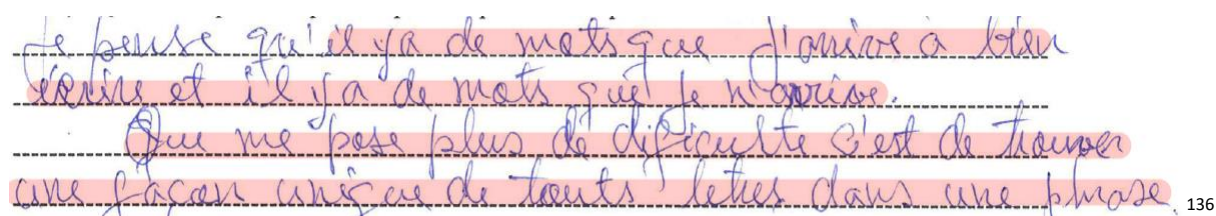 Je pense qu'il ya de mots que j'arrive à bien
écrire et il ya de mots que je n'arrive.
Que me pose plus de dificulte c'est de trouver
une façan unique de touts letres dans une phrase. 136